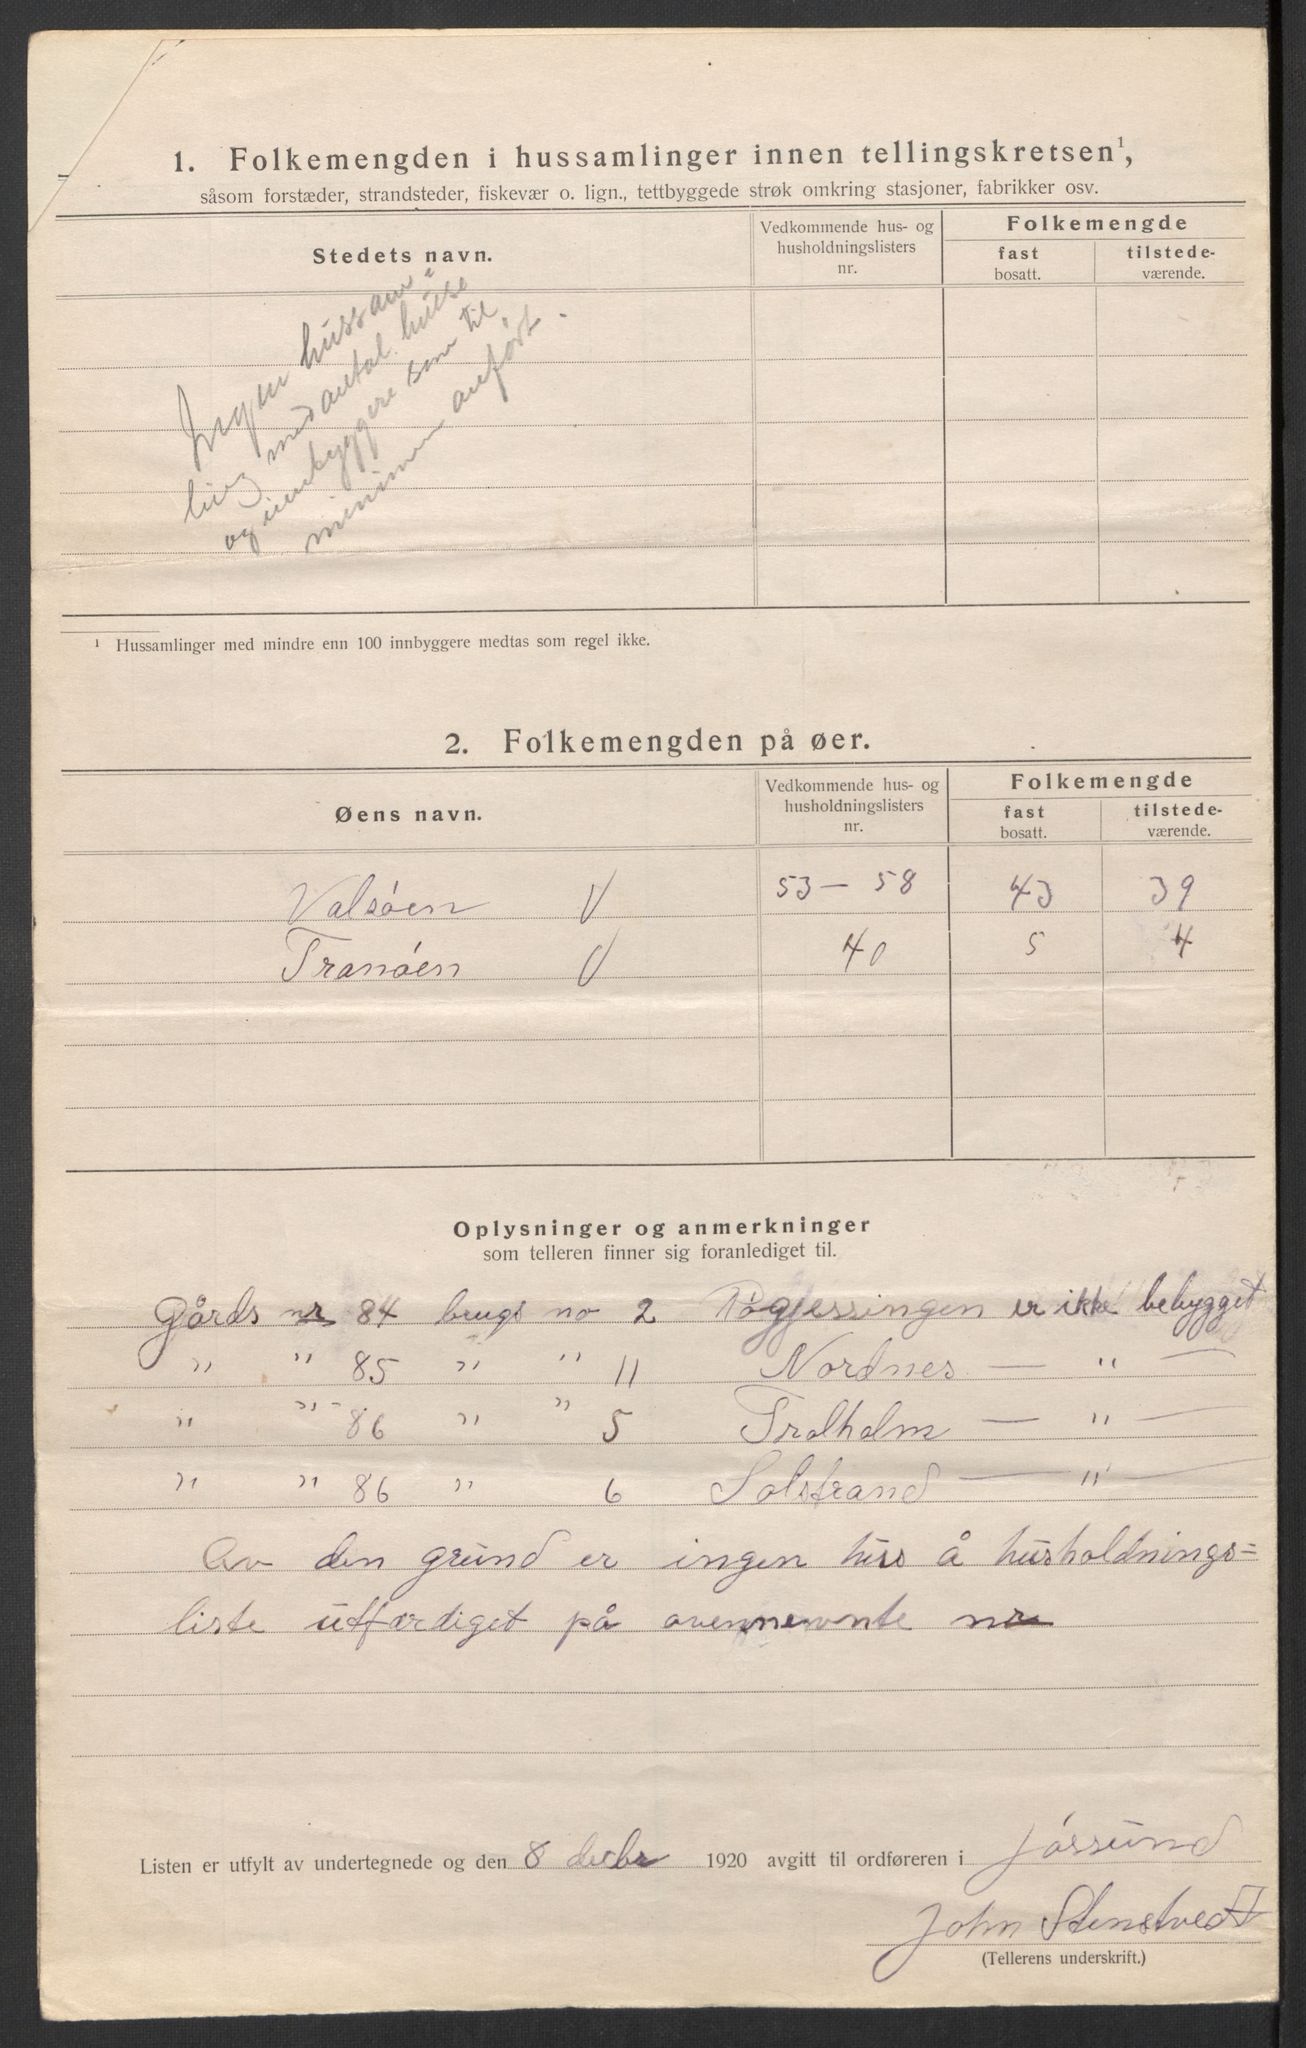 1. Folkemengden i hussamlinger innen tellingskretsen¹,
såsom forstæder, strandsteder, fiskevær o. lign., tettbyggede strøk omkring stasjoner, fabrikker osv.
Stedets navn.
Vedkommende hus- og husholdningslisters nr.
Folkemengde
fast bosatt.
tilstede-værende.
Ingen hussam-
ling med antal huse
og innbyggere som til
minimum anført.
¹ Hussamlinger med mindre enn 100 innbyggere medtas som regel ikke.
2. Folkemengden på øer.
Øens navn.
Vedkommende hus- og husholdningslisters nr.
Folkemengde
fast bosatt.
tilstede-værende.
Valsóen V 53 — 58 43 39
Tranóen V 40 5 4
Oplysninger og anmerkninger
som telleren finner sig foranlediget til.
Gårds nr 84 brugs no 2 er ikke bebygget
" " 85 " " 11 Nordnes — " —
" " 86 " " 5 Tralholm — " —
" " 86 " 6 Solstrand — " —
Av den grund er ingen hus å husholdnings=
liste utfærdiget på ovennevnte nr
Listen er utfylt av undertegnede og den 8 decbr 1920 avgitt til ordføreren i Jóssund
John Stenstvedt
(Tellerens underskrift.)